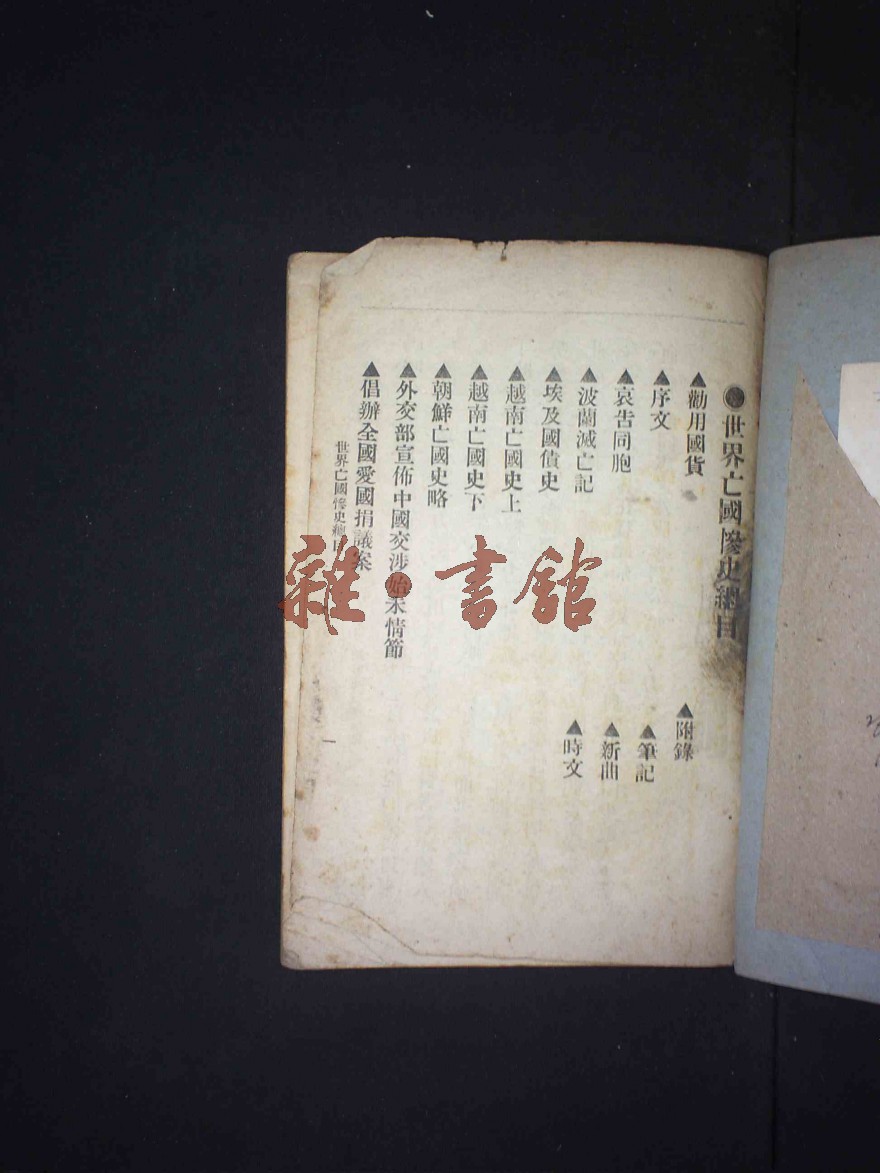 世界亡國慘史總目
勸用國貨
序文
哀告同胞
波蘭滅亡記
埃及國債史
越南亡國史上
越南亡國史下
朝鮮亡國史略
外交部宣佈中國交涉始末情節
倡辦全國愛國捐議案
附錄
筆記
新曲
時文
世界亡國慘史總目
一
雜書館